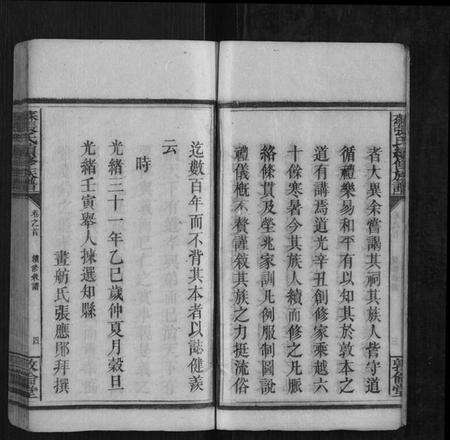 者大異余嘗謁其祠其族人皆守道
循禮樂易和平有以知其於敦本之
道有講焉道光辛丑創修家乘越六
十餘寒暑今其族人續而修之凡脈
絡條貫及塋兆家訓凡例服制圖說
禮儀概不贅謹敘其族之力挺流俗
迄數百年而不背其本者以誌健羨
云
時
光緒三十一年乙巳歲仲夏月穀旦
光緒壬寅舉人揀選知縣
畫舫氏張應鄏拜撰
卷之首
續修族譜
四
敦會堂